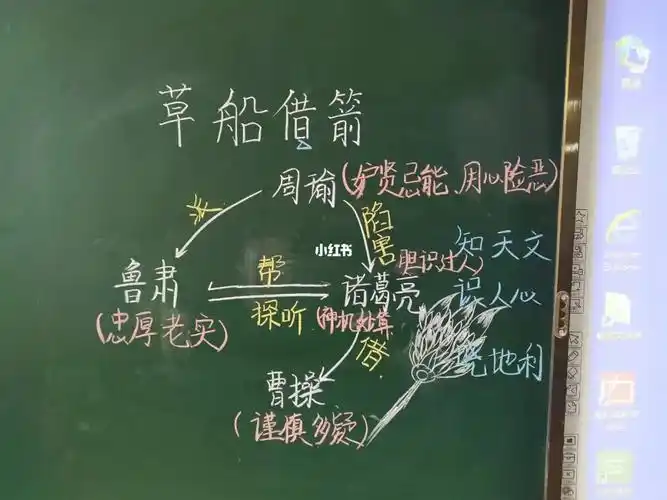 草船借箭
周瑜(妒贤忌能、用心险恶)
派
陷害
知天文
小红书
胆识过人)
帮
鲁肃
诸葛亮
识人心
(忠厚老实)
探听
(神机妙算
借
晓地利
曹操
(谨慎多疑)